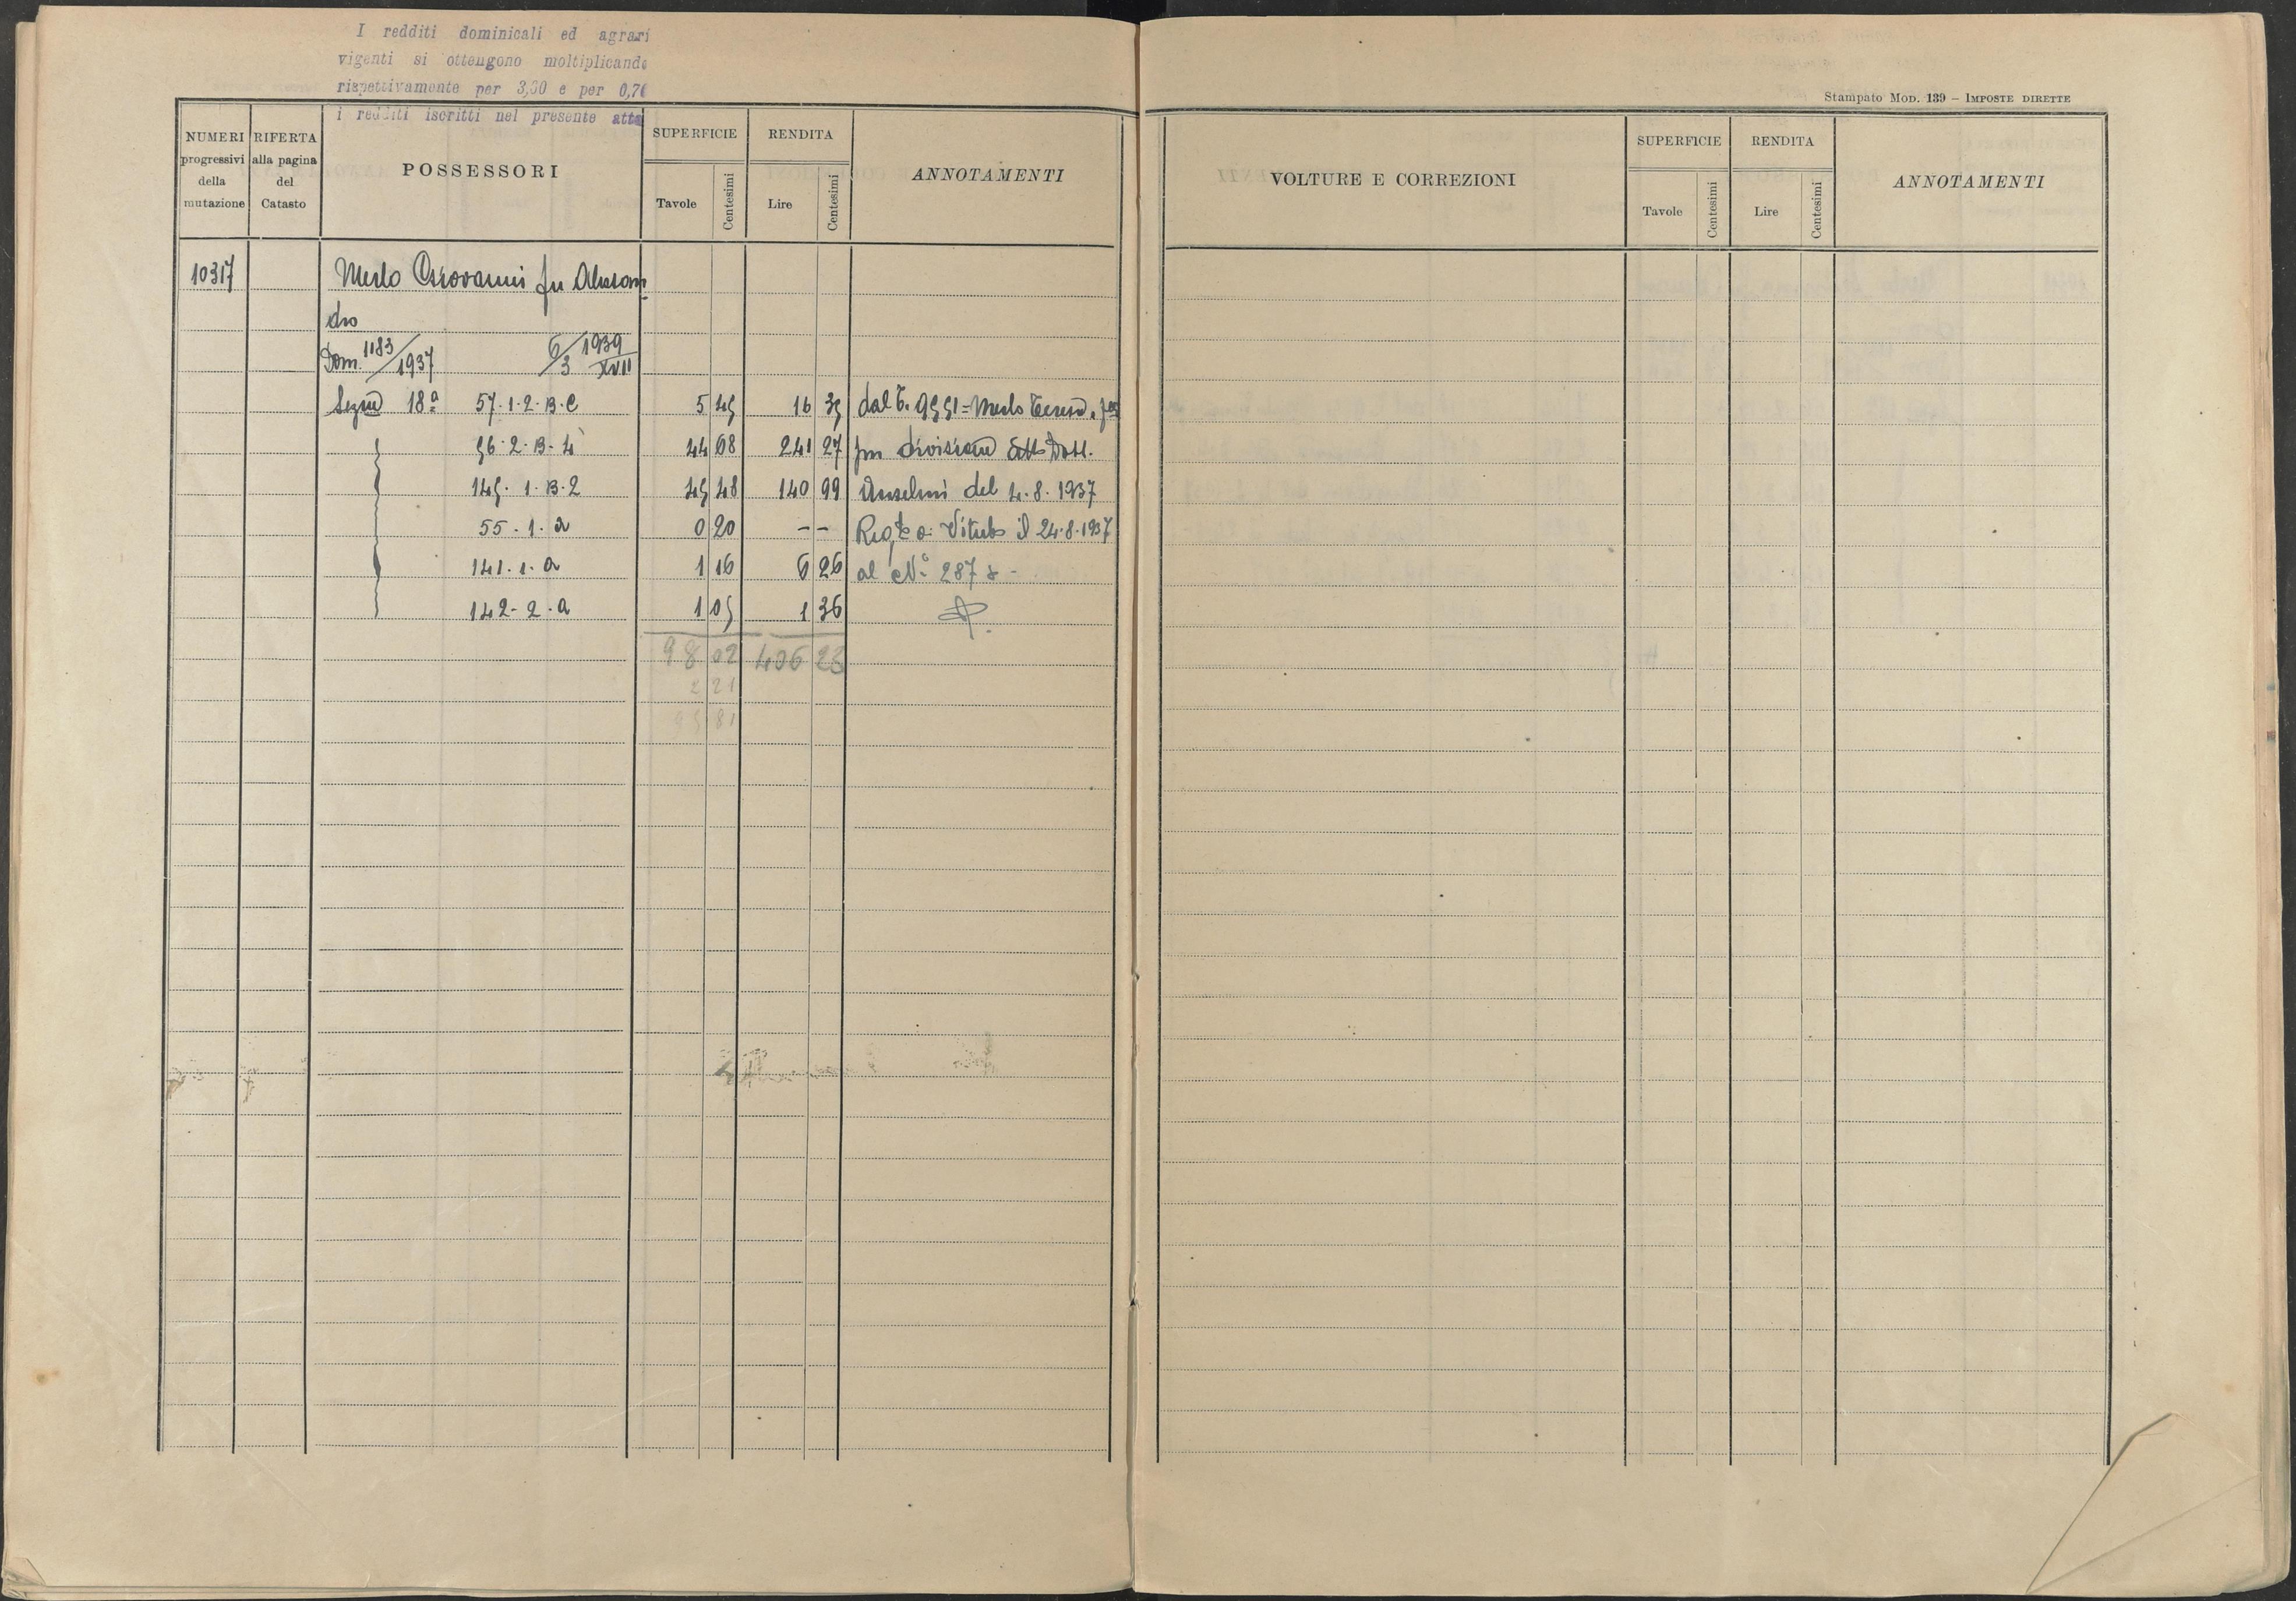 I redditi dominicali ed agrari
vigenti si ottengono moltiplicando
rispettivamente per 3,00 e per 0,7
i redditi iscritti nel presente atto
Stampato MOD. 139 – IMPOSTE DIRETTE
NUMERI progressivi della mutazione
RIFERTA alla pagina del Catasto
POSSESSORI
SUPERFICIE
Tavole Centesimi
RENDITA
Lire Centesimi
ANNOTAMENTI
10317 Merlo Giovanni fu Alessan-
dro
Dom. 1183/1937 6/3 1939 XVII
Sezne 18ª 57.1.2.B.C 5 45 16 35 dal 9551 = Merlo Teresa,
56.2.B.4 44 68 241 27 per divisione atto Dott.
145.1.B.2 45 48 140 99 Anselmi del 4.8.1937
55.1.a 0 20 -- Regto a Viterbo il 24.8.1937
141.1.a 1 16 6 26 al N° 287
142-2.a 1 05 1 36
98 02 406 23
2 21
95 81
VOLTURE E CORREZIONI
SUPERFICIE
Tavole Centesimi
RENDITA
Lire Centesimi
ANNOTAMENTI